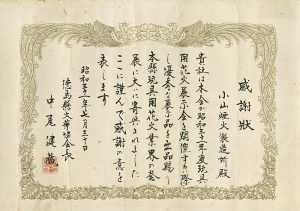 感謝狀
小山煙火製造所殿
貴社は本会が昭和三十一年度玩具
用花火展示会を開催する際
し優秀な展示品を出品賜り
本縣玩具用花火業界の発
展に大いに寄與されました
ここに謹んで感謝の意を
表します
昭和三十一年七月三十日
徳島縣火薬 会長
中尾健蔵